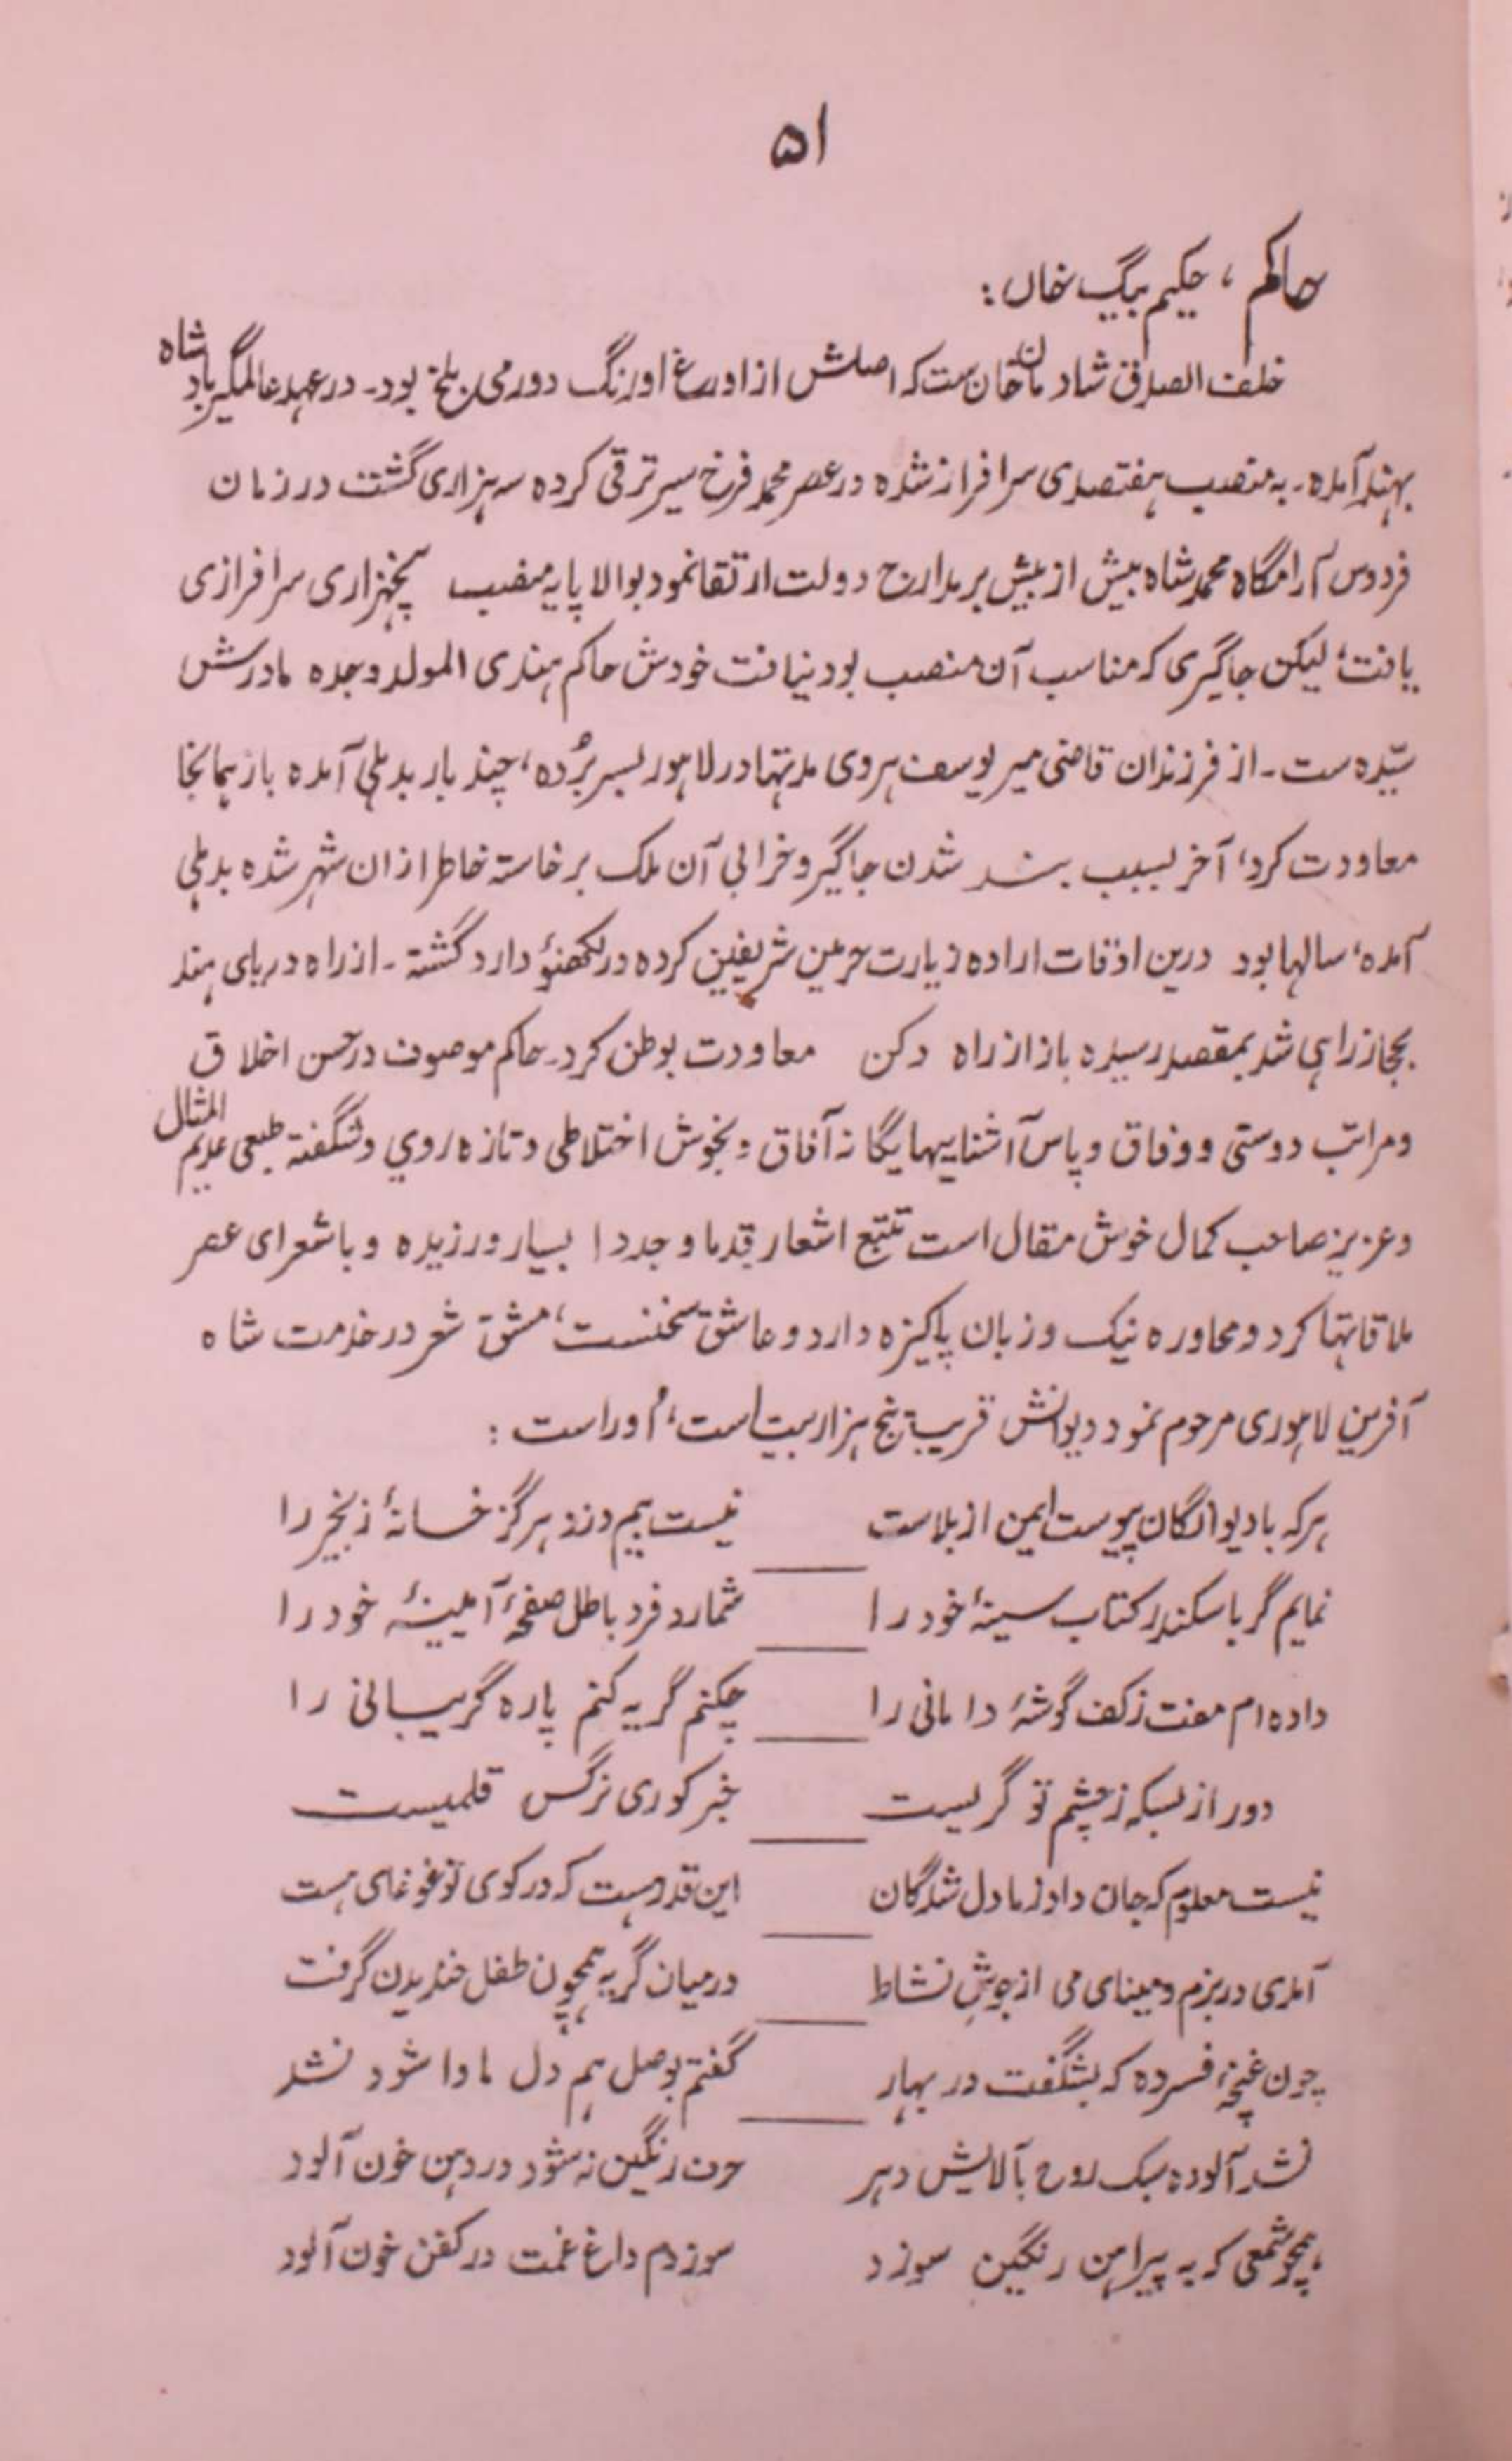 ۵۱
حاکم، حکیم بیگ خاں:
خلف الصدق شادمان خان ست که اصلش از اوراغ اوزنگ دورمی بلخ بود۔ در عهد عالمگیر بادشاه
بهند آمده۔ به منصب هفتصدی سرافراز شده در عصر محمد فرخ سیر ترقی کرده سه هزاری گشت در زمان
فردوس آرامگاه محمد شاه بیش از بیش بر مدارج دولت ارتقا نمود بوالا پایه منصب پنجهزاری سرافرازی
یافت، لیکن جاگیری که مناسب آن منصب بود نیافت خودش حاکم هندی المولد وجده مادرش
سیّده ست۔ از فرزندان قاضی میر یوسف هروی مدتها در لاهور بسر بُرده، چند بار بدهلی آمده باز بهمانجا
معاودت کرد، آخر بسبب بند شدن جاگیر و خرابی آن ملک برخاسته خاطر ازان شهر شده بدهلی
آمده، سالها بود درین اوقات اراده زیارت حرمین شریفین کرده در لکھنؤ وارد گشته۔ از راه دریای هند
بحجاز راهی شد بمقصد رسیده باز از راه دکن معاودت بوطن کرد۔ حاکم موصوف در حسن اخلاق
و مراتب دوستی و وفاق و پاس آشناییها یگانه آفاق و بخوش اختلاطی و تازه روی و شگفته طبعی عدیم المثال
و عزیز صاحب کمال خوش مقال است تتبع اشعار قدما و جددا بسیار ورزیده و با شعرای عصر
ملاقاتها کرد و محاوره نیک و زبان پاکیزه دارد و عاشق سخنست، مشق شعر در خدمت شاه
آفرین لاهوری مرحوم نمود دیوانش قریب پنج هزار بیت است، اُوراست:
هرکه با دیوانگان پیوست ایمن از بلاست نیست بیم دزد هرگز خانهٔ زنجیر را
نمایم گر با سکندر کتاب سینهٔ خود را شمارد فرد باطل صفحهٔ آیینهٔ خود را
داده ام مفت ز کف گوشهٔ دامانی را چکنم گر نه کنم پاره گریبانی را
دور از بسکه ز چشم تو گریست خبر کوری نرگس قلمیست
نیست معلوم که جان داد ز ما دل شدگان این قدر هست که در کوی تو غوغای هست
آمدی در بزم و مینای می از جوشِ نشاط در میان گریه همچون طفل خندیدن گرفت
چون غنچهٔ فسرده که بشگفت در بهار گفتم بوصل هم دل ما وا شود نشد
نشد آلوده سبک روح بآلایش دهر حرف رنگین نه شود در دهن خون آلود
همچو شمعی که به پیراهن رنگین سوزد سوزدم داغ غمت در کفن خون آلود